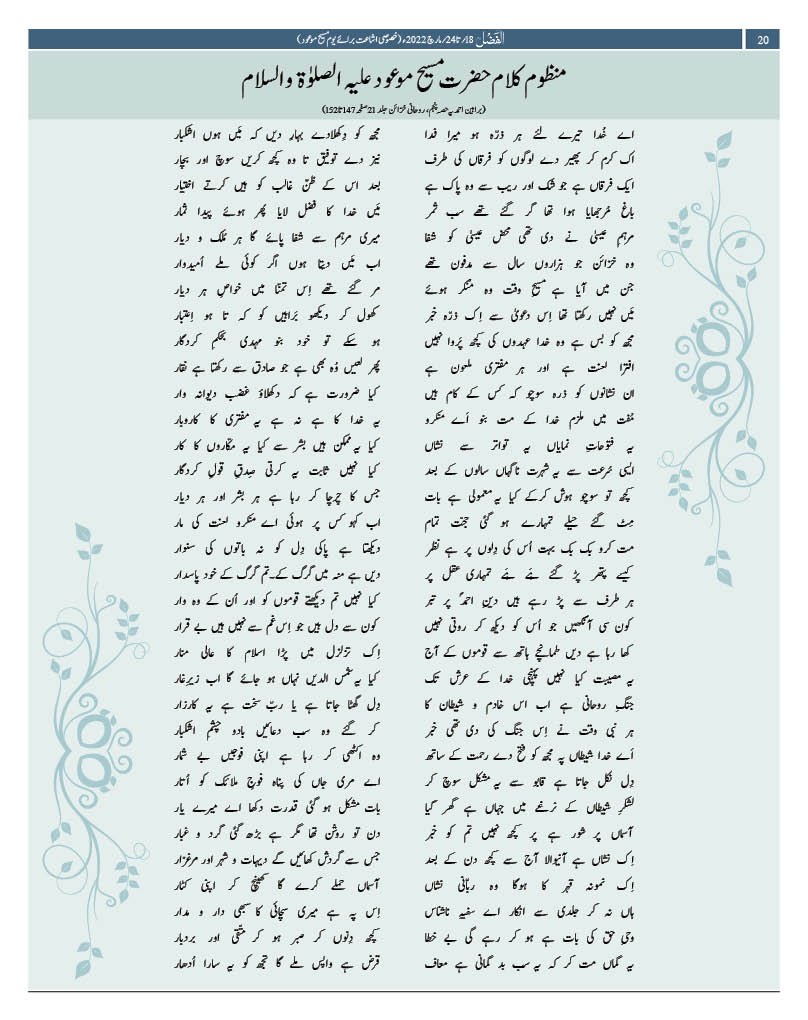 20
الفضل 18؍تا24؍مارچ 2022ء (خصوصی اشاعت برائے یوم مسیح موعود)
منظوم کلام حضرت مسیح موعود علیہ الصلوٰۃ والسلام
(براہین احمدیہ حصہ پنجم، روحانی خزائن جلد 21صفحہ 147تا152)
اے خُدا تیرے لئے ہر ذرّہ ہو میرا فدا مجھ کو دِکھلادے بہارِ دیں کہ مَیں ہوں اشکبار
اک کرم کر پھیر دے لوگوں کو فرقاں کی طرف نیز دے توفیق تا وہ کچھ کریں سوچ اور بچار
ایک فرقاں ہے جو شک اور ریب سے وہ پاک ہے بعد اس کے ظنِّ غالب کو ہیں کرتے اختیار
باغ مُرجھایا ہوا تھا گر گئے تھے سب ثمر مَیں خدا کا فضل لایا پھر ہوئے پیدا ثمار
مرہمِ عیسیٰ نے دی تھی محض عیسیٰ کو شفا میری مرہم سے شفا پائے گا ہر ملک و دیار
وہ خزائن جو ہزاروں سال سے مدفون تھے اب مَیں دیتا ہوں اگر کوئی ملے اُمیدوار
جن میں آیا ہے مسیحِ وقت وہ منکر ہوئے مر گئے تھے اِس تمنّا میں خواص ہر دیار
مَیں نہیں رکھتا تھا اِس دعویٰ سے اِک ذرّہ خبر کھول کر دیکھو بَراہیں کو کہ تا ہو اِعتبار
مجھ کو بس ہے وہ خدا عہدوں کی کچھ پَروا نہیں ہو سکے تو خود بنو مہدی بحکمِ کردگار
افترا لعنت ہے اور ہر مفتری ملعون ہے پھر لعیں وُہ بھی ہے جو صادق سے رکھتا ہے نقار
ان نشانوں کو ذرہ سوچو کہ کس کے کام ہیں کیا ضرورت ہے کہ دکھلاؤ غضب دیوانہ وار
مُفت میں ملزم خدا کے مت بنو اَے منکرو یہ خدا کا ہے نہ ہے یہ مفتری کا کاروبار
یہ فتوحاتِ نمایاں یہ تواتر سے نشاں کیا یہ ممکن ہیں بشر سے کیا یہ مکّاروں کا کار
ایسی سُرعت سے یہ شہرت ناگہاں سالوں کے بعد کیا نہیں ثابت یہ کرتی صِدقِ قولِ کردگار
کچھ تو سوچو ہوش کرکے کیا یہ معمولی ہے بات جس کا چرچا کر رہا ہے ہر بشر اور ہر دیار
مِٹ گئے حیلے تمہارے ہو گئی حجت تمام اب کہو کس پر ہوئی اے منکرو لعنت کی مار
مت کرو بک بک بہت اُس کی دِلوں پر ہے نظر دیکھتا ہے پاکی دِل کو نہ باتوں کی سنوار
کیسے پتھر پڑ گئے ہَے ہَے تمہاری عقل پر دیں ہے منہ میں گرگ کے۔ تم گرگ کے خود پاسدار
ہر طرف سے پڑ رہے ہیں دینِ احمدؐ پر تبر کیا نہیں تم دیکھتے قوموں کو اور اُن کے وہ وار
کون سی آنکھیں جو اُس کو دیکھ کر روتی نہیں کون سے دل ہیں جو اِس غم سے نہیں ہیں بے قرار
کھا رہا ہے دیں طمانچے ہاتھ سے قوموں کے آج اِک تزلزل میں پڑا اسلام کا عالی منار
یہ مصیبت کیا نہیں پہنچی خدا کے عرش تک کیا یہ شمس الدیں نہاں ہو جائے گا اب زیرِغار
جنگِ روحانی ہے اب اس خادم و شیطان کا دِل گھٹا جاتا ہے یا ربّ سخت ہے یہ کارزار
ہر نبیِ وقت نے اِس جنگ کی دی تھی خبر کر گئے وہ سب دعائیں بادو چشمِ اشکبار
اَے خدا شیطاں پہ مجھ کو فتح دے رحمت کے ساتھ وہ اکٹھی کر رہا ہے اپنی فوجیں بے شمار
دِل نکل جاتا ہے قابو سے یہ مشکل سوچ کر اے مری جاں کی پناہ فوجِ ملائک کو اُتار
لشکرِ شیطاں کے نرغے میں جہاں ہے گھر گیا بات مشکل ہو گئی قدرت دکھا اے میرے یار
آسماں پر شور ہے پر کچھ نہیں تم کو خبر دن تو روشن تھا مگر ہے بڑھ گئی گرد و غبار
اِک نشاں ہے آنیوالا آج سے کچھ دن کے بعد جس سے گردش کھائیں گے دیہات و شہر اور مرغزار
اِک نمونہ قہر کا ہوگا وہ ربّانی نشاں آسماں حملے کرے گا کھینچ کر اپنی کٹار
ہاں نہ کر جلدی سے انکار اے سفیہِ ناشناس اِس پہ ہے میری سچائی کا سبھی دار و مدار
وحیِ حق کی بات ہے ہو کر رہے گی بے خطا کچھ دِنوں کر صبر ہو کر متّقی اور بردبار
یہ گماں مت کر کہ یہ سب بد گمانی ہے معاف قرض ہے واپس ملے گا تجھ کو یہ سارا اُدھار